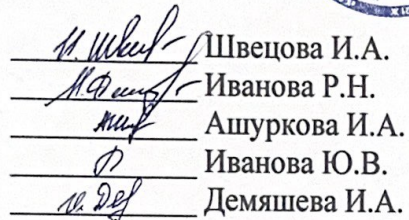 Швецова И.А.
Иванова Р.Н.
Ашуркова И.А.
Иванова Ю.В.
Демяшева И.А.